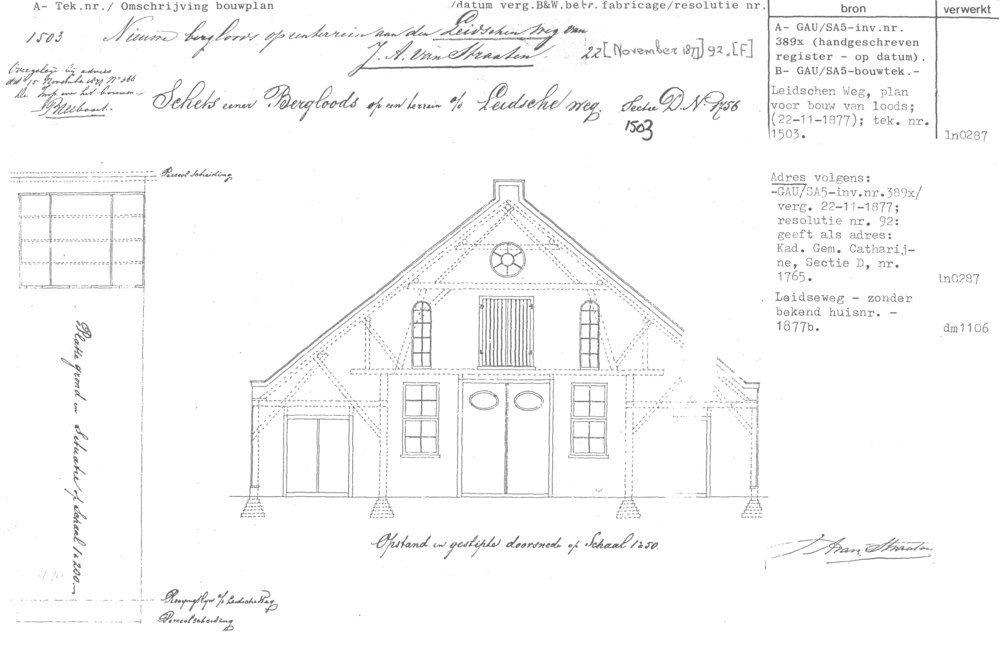 A- Tek.nr./ Omschrijving bouwplan
/datum verg.B&W.betr.fabricage/resolutie nr.
bron
verwerkt
1503 Nieuwe bergloods op een terrein aan den Leidschen Weg van
J. A. van Straaten. 22 [November 1877] 92. [F]
A- GAU/SA5-inv.nr.
389x (handgeschreven
register - op datum).
B- GAU/SA5-bouwtek.-
Leidschen Weg, plan
voor bouw van loods;
(22-11-1877); tek. nr.
1503.
ln0287
Schets eener Bergloods op een terrein a/d Leidsche weg. Sectie D. No. 1756
1503
Adres volgens:
-GAU/SA5-inv.nr.389x/
verg. 22-11-1877;
resolutie nr. 92:
geeft als adres:
Kad. Gem. Catharij-
ne, Sectie D, nr.
1765.
ln0287
Leidseweg - zonder
bekend huisnr. -
1877b.
dm1106
Perceelscheiding
Platte grond en Situatie op Schaal 1 à 200.
Opstand en gestipte doorsnede op Schaal 1 à 50
J A van Straaten
Rooyingslijn a/d Leidsche Weg
Perceelscheiding